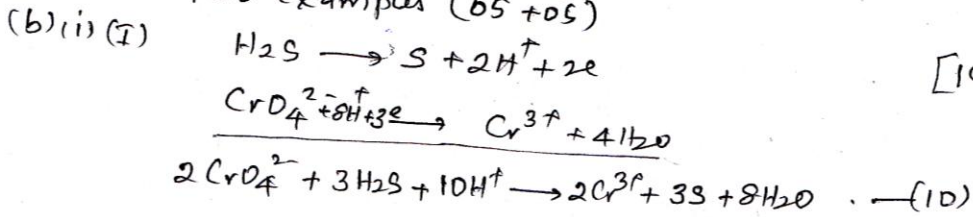 Examples (05 + 05)
(b)(i)(I)
H2S ⟶ S + 2H⁺ + 2e
[1
CrO4²⁻ + 8H⁺ + 3e ⟶ Cr³⁺ + 4H2O
2 CrO4²⁻ + 3H2S + 10H⁺ ⟶ 2Cr³⁺ + 3S + 8H2O . —(10)